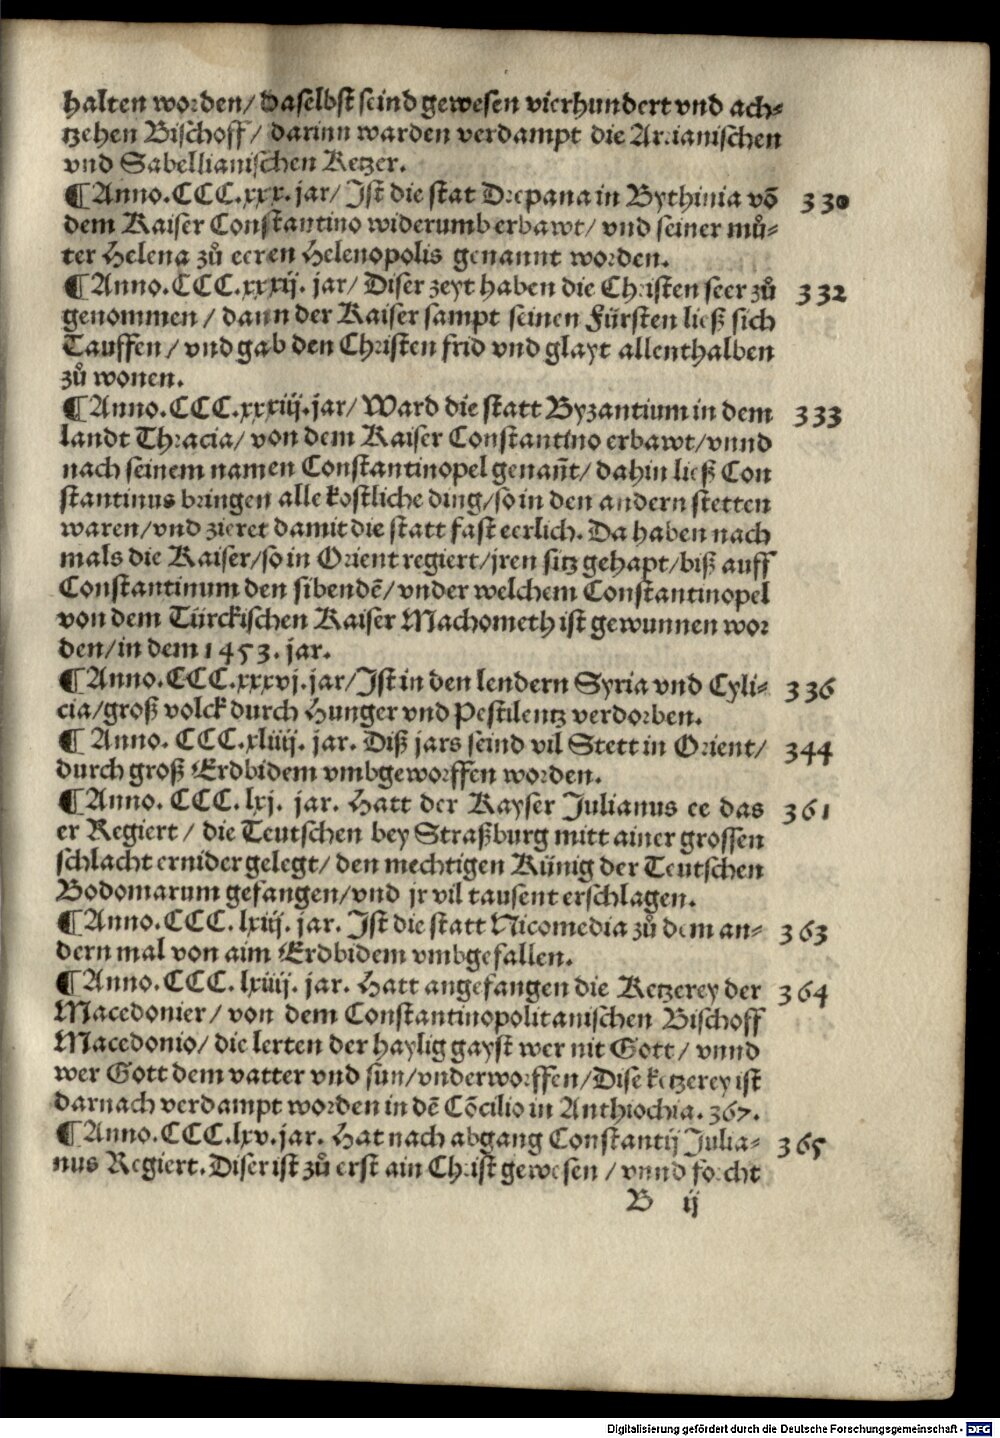 halten worden/ daselbst seind gewesen vierhundert vnd ach⸗
tzehen Bischoff/ darinn warden verdampt die Arrianischen
vnd Sabellianischen Ketzer.
¶ Anno. CCC.xxx. jar/ Ist die stat Drepana in Bythinia võ 330
dem Kaiser Constantino widerumb erbawt/ vnd seiner můͤ⸗
ter Helena zů eeren Helenopolis genannt worden.
¶ Anno. CCC.xxxij. jar/ Diser zeyt haben die Christen seer zů 332
genommen/ dann der Kaiser sampt seinen Fürsten ließ sich
Tauffen/ vnd gab den Christen frid vnd glayt allenthalben
zů wonen.
¶ Anno. CCC.xxxiij. jar/ Ward die statt Byzantium in dem 333
landt Thracia/ von dem Kaiser Constantino erbawt/ vnnd
nach seinem namen Constantinopel genañt/ dahin ließ Con
stantinus bringen alle kostliche ding/ so in den andern stetten
waren/ vnd zieret damit die statt fast eerlich. Da haben nach
mals die Kaiser/ so in Orient regiert/ jren sitz gehapt/ biß auff
Constantinum den sibendẽ/ vnder welchem Constantinopel
von dem Türckischen Kaiser Machometh ist gewunnen wor
den/ in dem 1453. jar.
¶ Anno. CCC.xxxvj. jar/ Ist in den lendern Syria vnd Cyli⸗ 336
cia/ groß volck durch Hunger vnd Pestilentz verdorben.
¶ Anno. CCC.xliiij. jar. Diß jars seind vil Stett in Orient/ 344
durch groß Erdbidem vmbgeworffen worden.
¶ Anno. CCC. lxj. jar. Hatt der Kayser Julianus ee das 361
er Regiert/ die Teutschen bey Straßburg mitt ainer grossen
schlacht ernider gelegt/ den mechtigen Künig der Teutschen
Bodomarum gefangen/ vnd jr vil tausent erschlagen.
¶ Anno. CCC. lxiij. jar. Ist die statt Nicomedia zů dem an⸗ 363
dern mal von aim Erdbidem vmbgefallen.
¶ Anno. CCC. lxiiij. jar. Hatt angefangen die Ketzerey der 364
Macedonier/ von dem Constantinopolitanischen Bischoff
Macedonio/ die lerten der haylig gayst wer nit Gott/ vnnd
wer Gott dem vatter vnd sün/ vnderworffen/ Dise ketzerey ist
darnach verdampt worden in dẽ Cõcilio in Anthiochia. 367.
¶ Anno. CCC. lxv. jar. Hat nach abgang Constantij Julia⸗ 365
nus Regiert. Diser ist zů erst ain Christ gewesen/ vnnd forcht
B ij
Digitalisierung gefördert durch die Deutsche Forschungsgemeinschaft - DFG